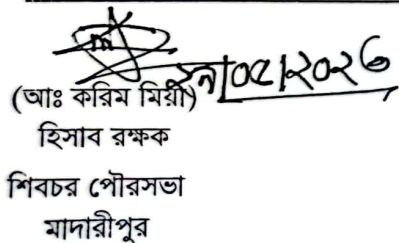 ০৫/২০২৬
(আঃ করিম মিয়া)
হিসাব রক্ষক
শিবচর পৌরসভা
মাদারীপুর